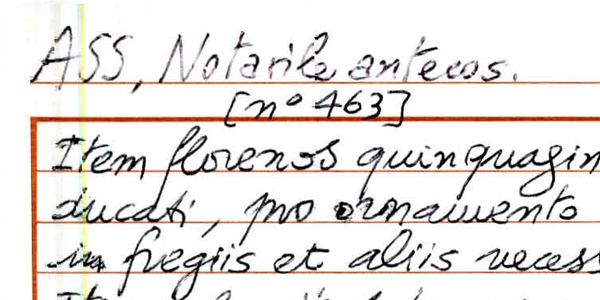 ASS, Notarile antecos.
[n° 463]
Item florenos quinquagin
ducati, pro ornamento
in fregiis et aliis necess